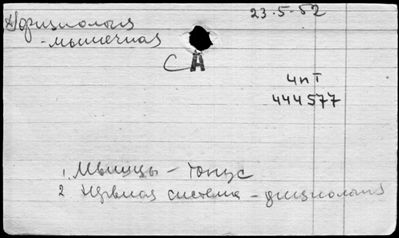 23.5-52
Нфизиология
-мышечная
СА
4пТ
444577
1. Мышцы - тонус
2 Нервная система - физиология